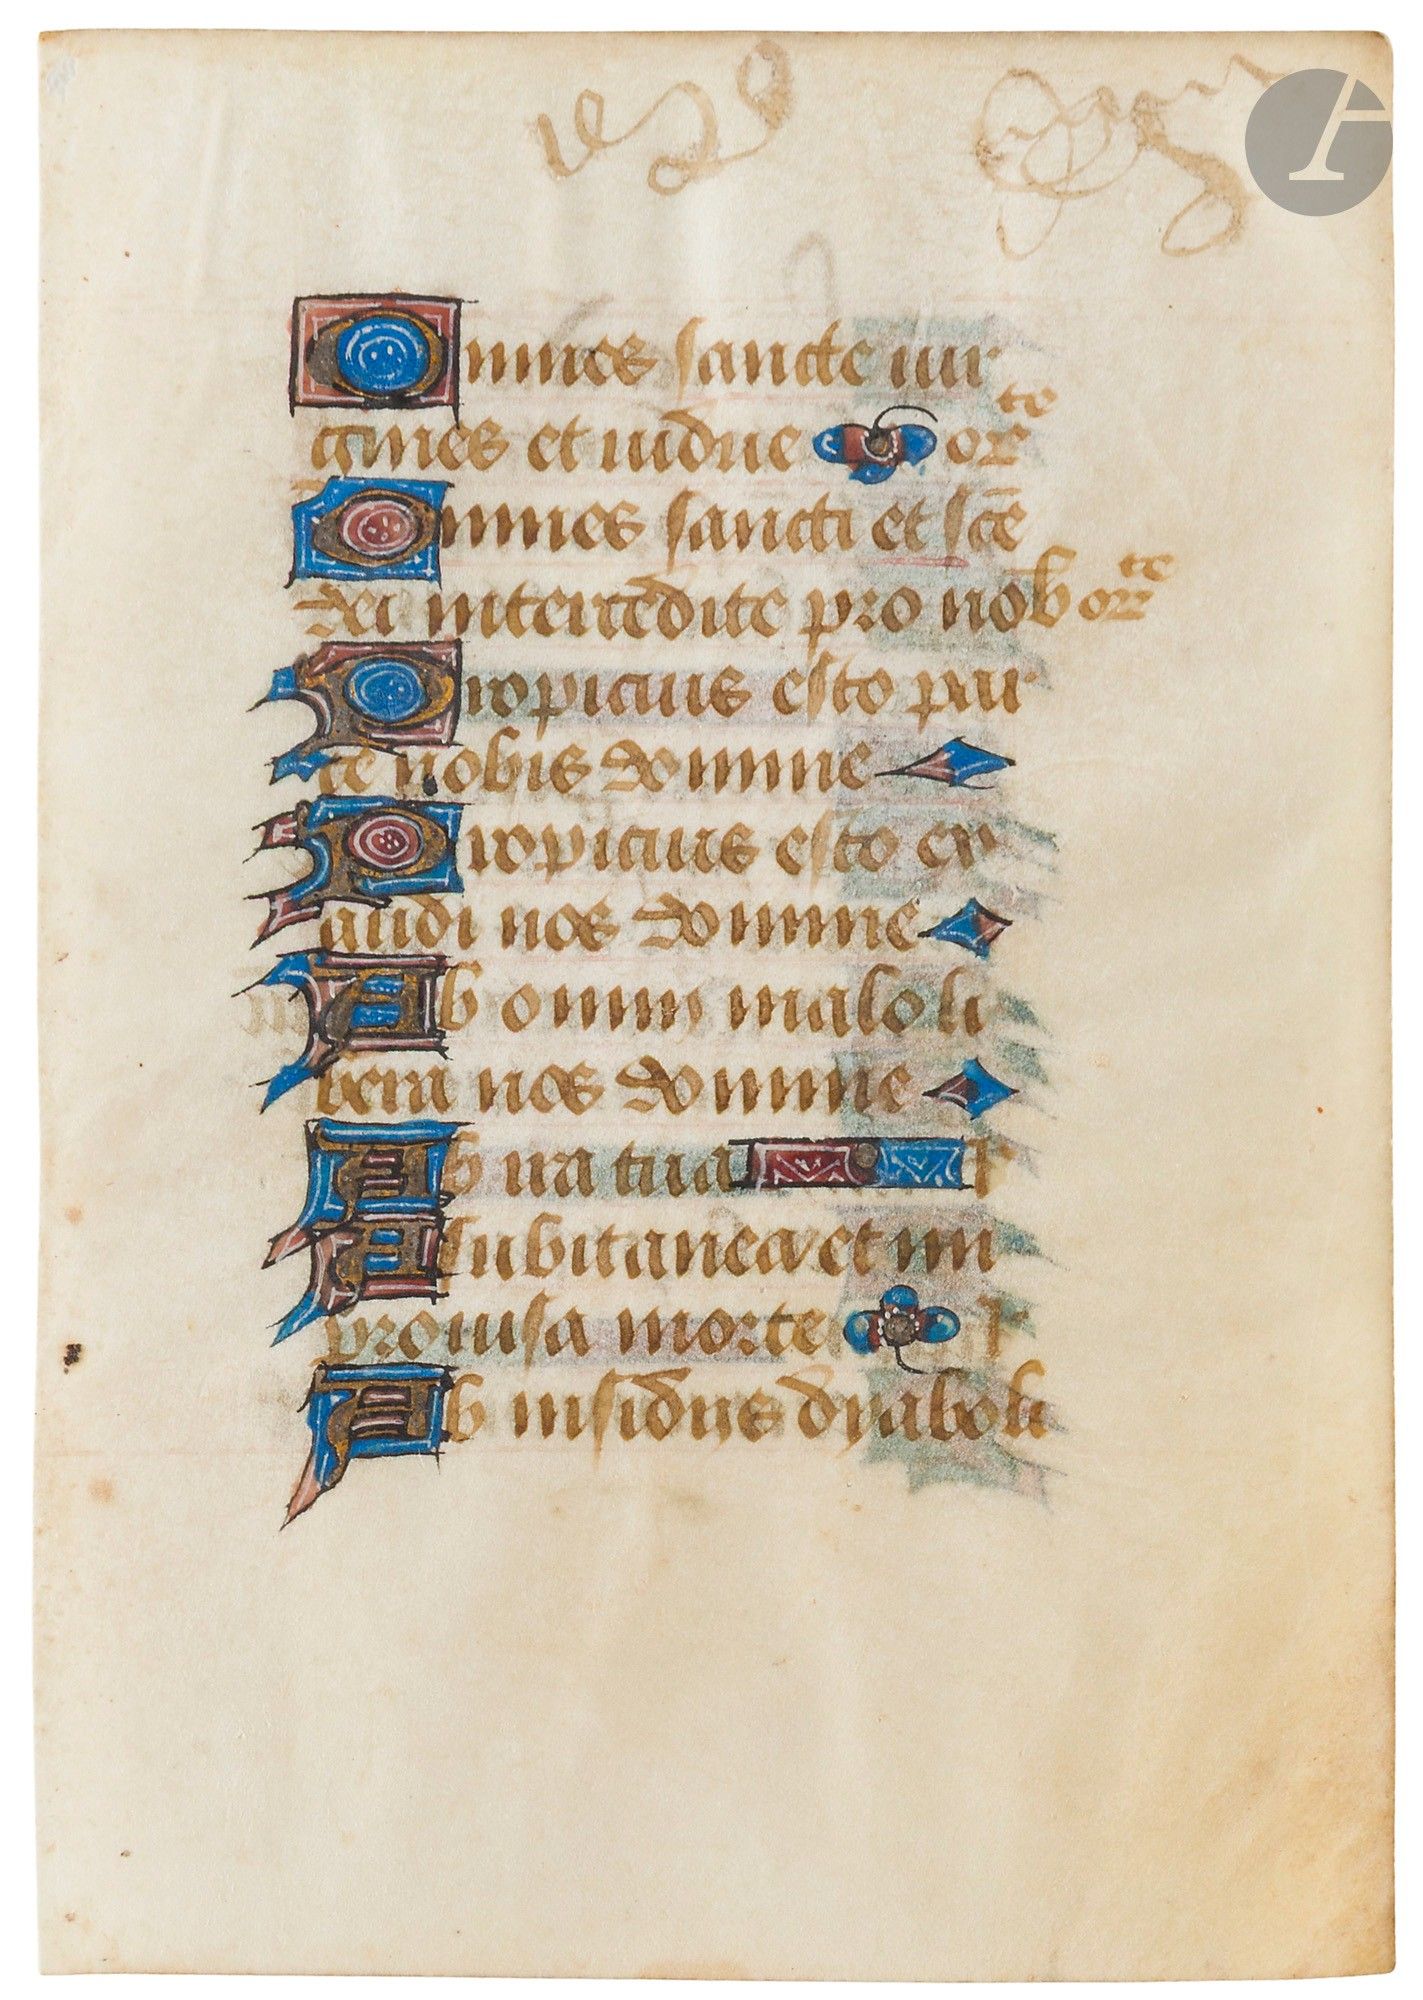 Omnes sancte uir
gines et uidue orate
Omnes sancti et scē
dei intercedite pro nob orate
Propicius esto par
ce nobis domine
Propicius esto ex
audi nos domine
Ab omni malo li
bera nos domine
Ab ira tua l
A subitanea et im
prouisa morte l
Ab insidiis dyaboli